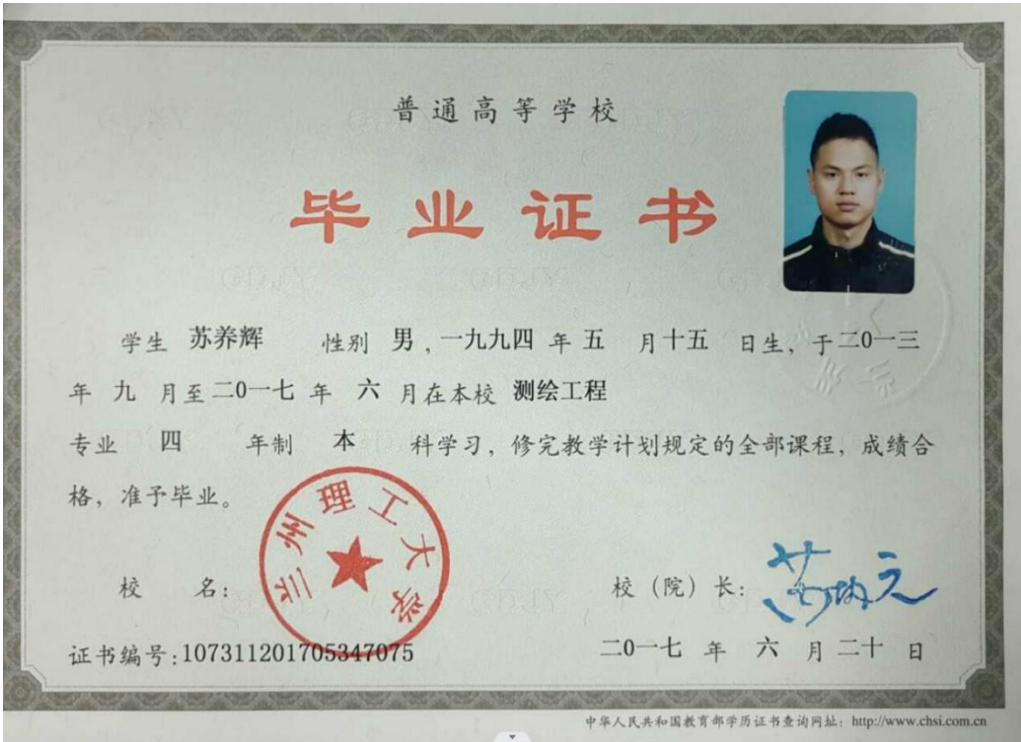 普通高等学校
毕业证书
学生 苏养辉 性别 男，一九九四 年 五 月 十五 日生，于 二0一三
年 九 月至 二0一七 年 六 月在本校 测绘工程
专业 四 年制 本 科学习，修完教学计划规定的全部课程，成绩合
格，准予毕业。
兰州理工大学
校 名： 校（院）长：
证书编号：107311201705347075 二0一七 年 六 月 二十 日
中华人民共和国教育部学历证书查询网址：http://www.chsi.com.cn